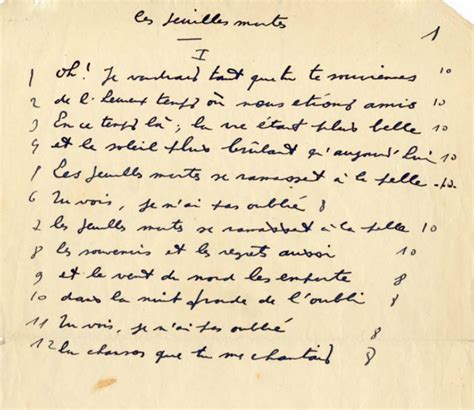 les feuilles mortes
1
I
1 Oh! Je voudrais tant que tu te souviennes 10
2 de l'heureux temps où nous étions amis 10
3 En ce temps là; la vie était plus belle 10
4 et le soleil plus brûlant qu'aujourd'hui 10
5 Les feuilles mortes se ramassent à la pelle 10
6 Tu vois, je n'ai pas oublié 8
7 les feuilles mortes se ramassent à la pelle 10
8 les souvenirs et les regrets aussi 10
9 et le vent du nord les emporte 8
10 dans la nuit froide de l'oubli 8
11 Tu vois, je n'ai pas oublié 8
12 la chanson que tu me chantais 8